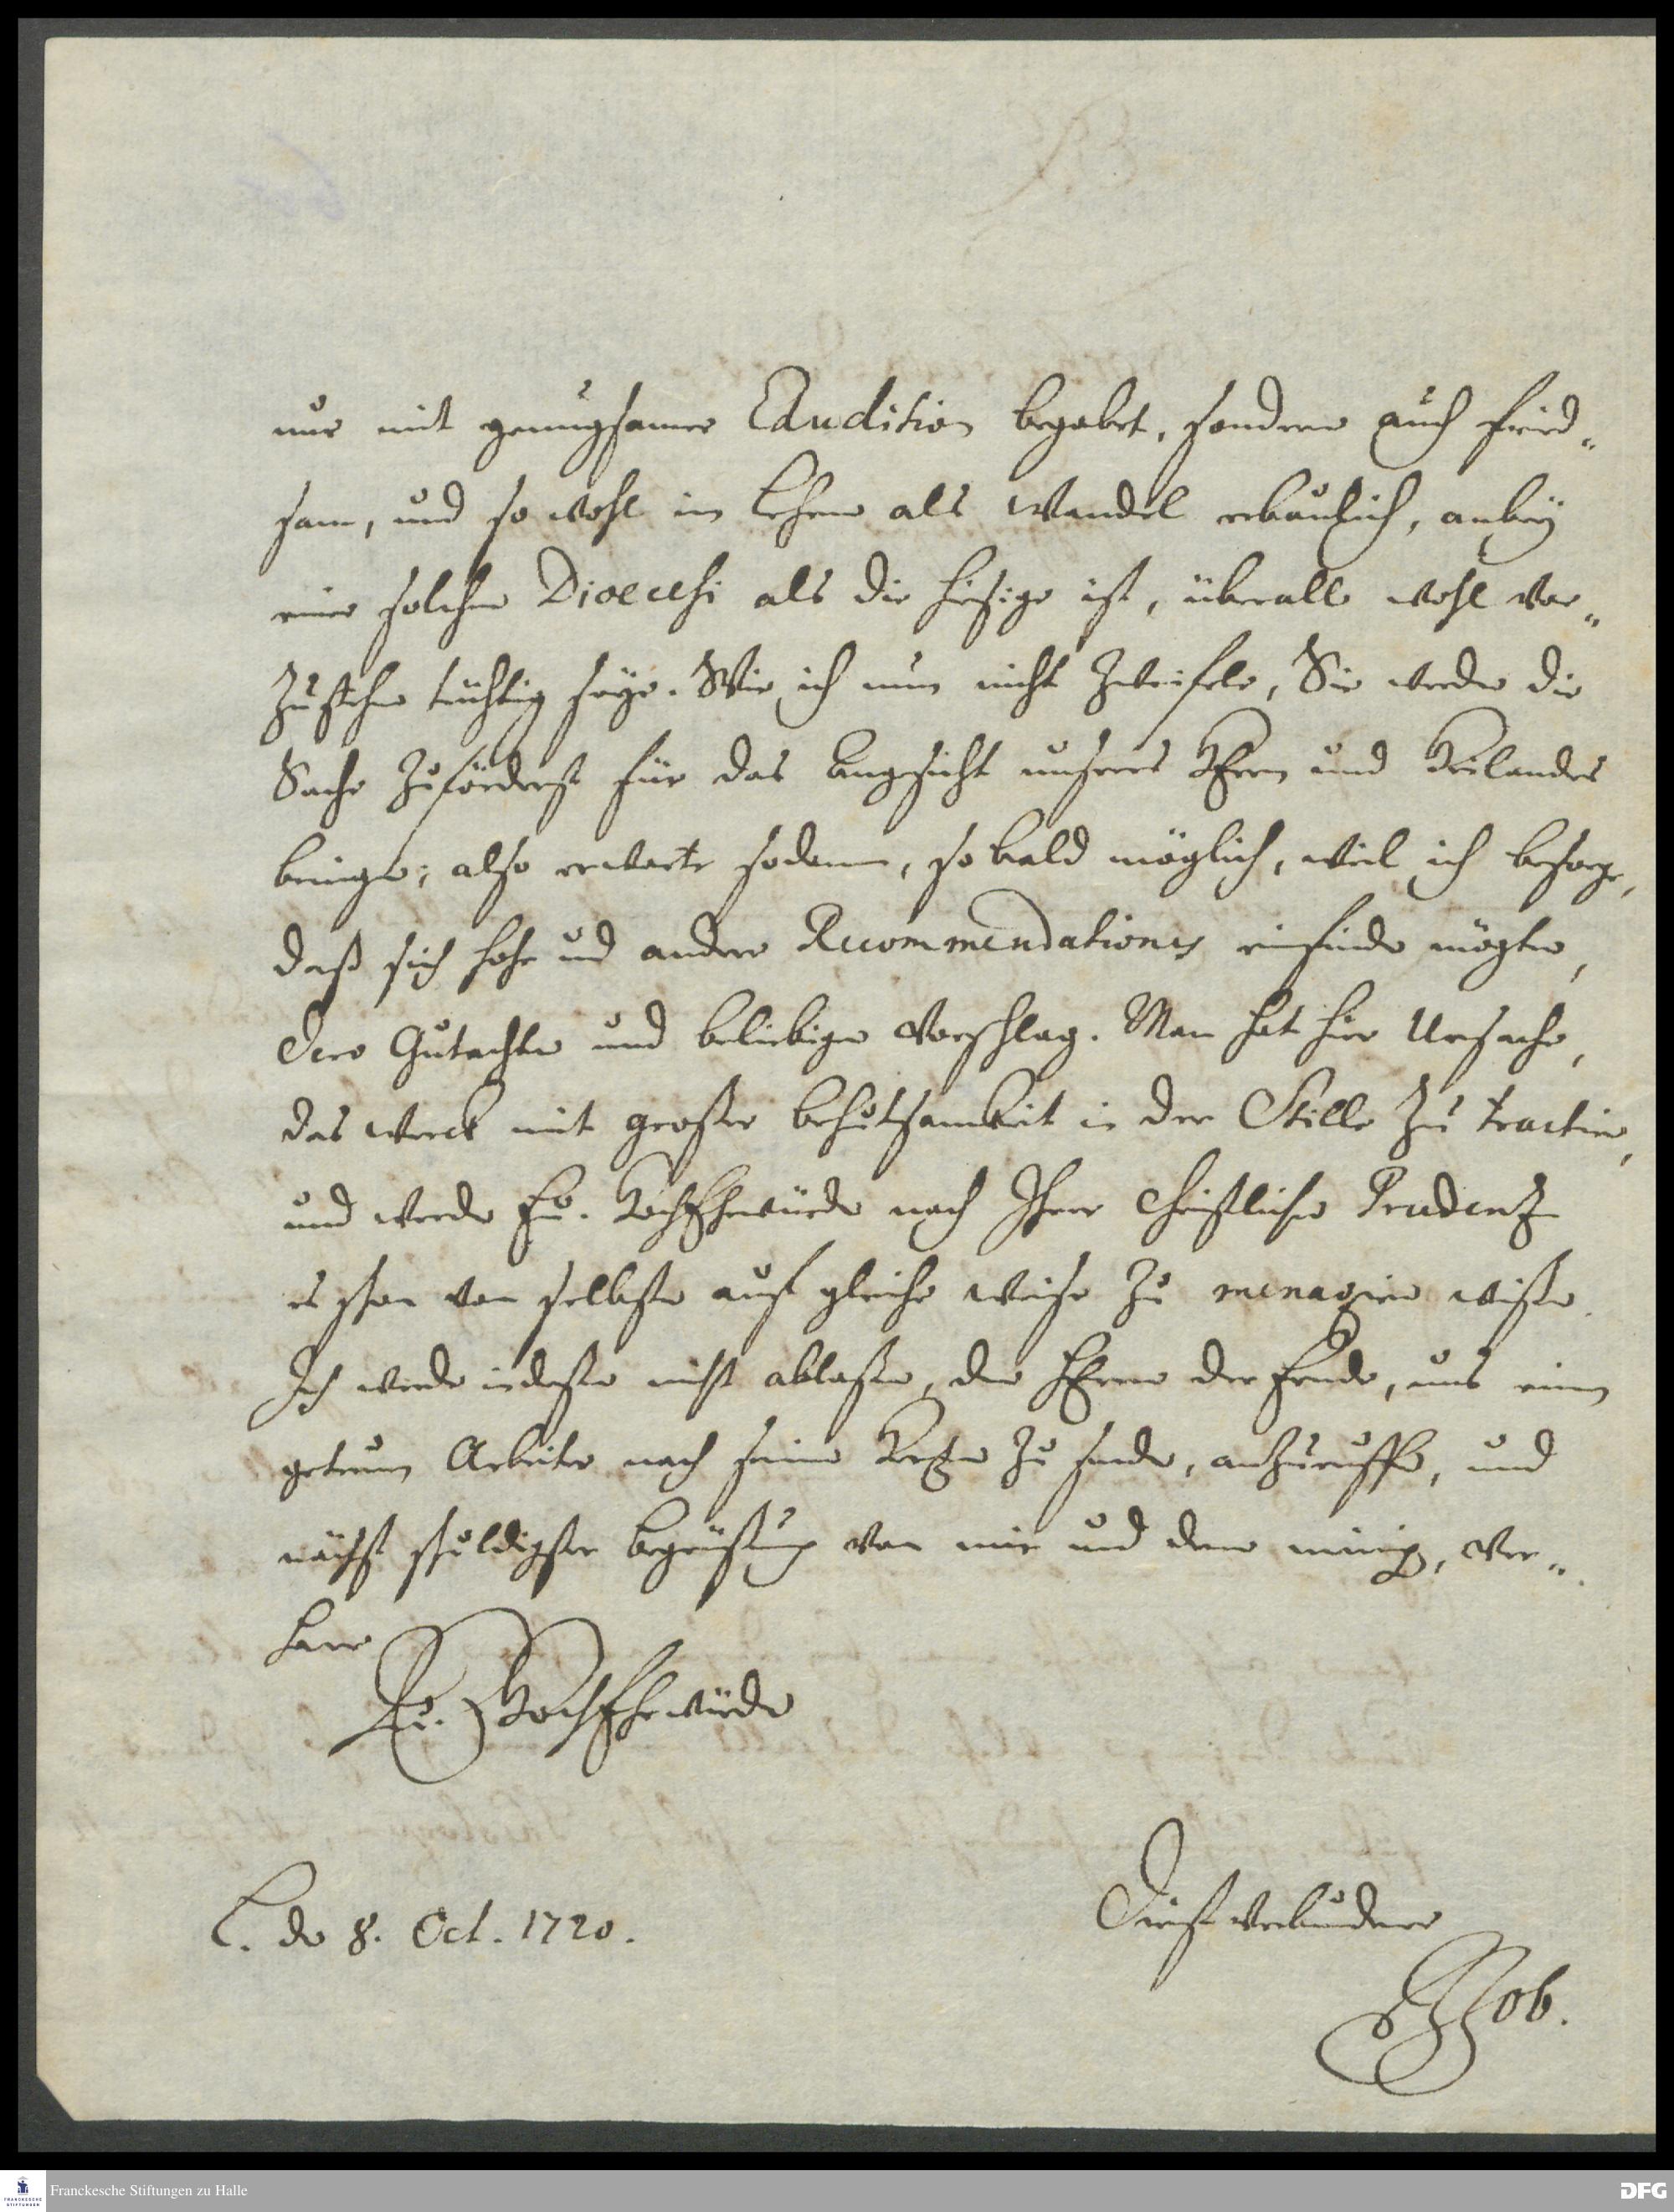 nur mit genugsamer Erudition begabet, sondern auch fried„
sam, und so wohl in Lehren als Wandel erbaulich, anbeÿ
einer solchen Dioecesi als die hiesige ist, überall wohl vor„
zustehen tüchtig seÿe. Wie ich nun nicht zweifele, Sie werden die
Sache zuförderst für das Angesicht unseres HErrn und Heilandes
bringen; also erwarte sodann, so bald möglich, weil ich besorge,
daß sich hohe und andere Recommendationes einfinden mögten,
Dero Gutachten und beliebigen Vorschlag. Man hat hier Ursache,
das Werck mit großer behutsamkeit in der Stille zu tractiren,
und werden Eu. HochEhrwürden nach Ihrer Christlichen Prudentz
es schon von selbsten auf gleiche weise zu menagiren wißen.
Ich werde indeßen nicht ablaßen, den HErrn der Ernde, uns einen
getreuen Arbeiter nach seinem Hertzen zu senden, anzuruffen, und
nächst schuldigster begrüßung von mir und denen meinigen, ver„
harre
Eu. HochEhrwürden
L. den 8. Oct. 1720.
Dienstverbundener
Job.
Franckesche Stiftungen zu Halle
DFG